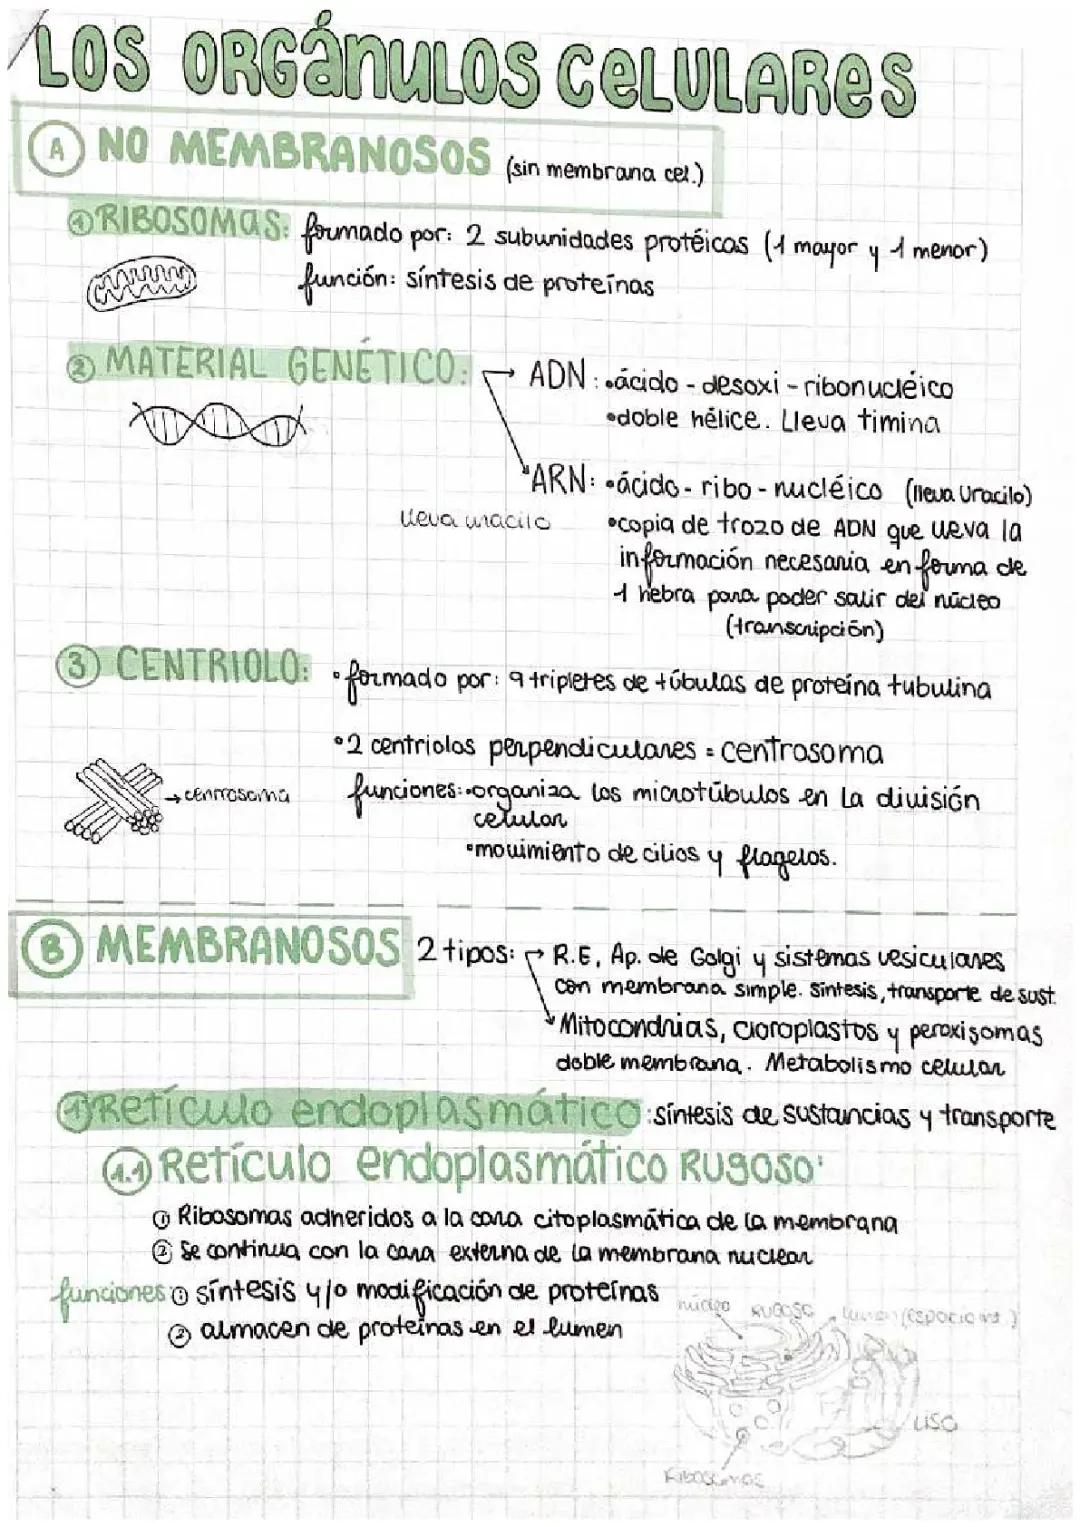 LOS ORGÁNULOS CELULARES
A NO MEMBRANOSOS (sin membrana cel.)
1 RIBOSOMAS: formado por: 2 subunidades protéicas (1 mayor y 1 menor)
función: síntesis de proteínas
2 MATERIAL GENÉTICO: → ADN: •ácido - desoxi - ribonucléico
•doble hélice. Lleva timina
ARN: •ácido - ribo - nucléico (lleva Uracilo)
lleva uracilo
•copia de trozo de ADN que lleva la
información necesaria en forma de
1 hebra para poder salir del núcleo
(transcripción)
3 CENTRIOLO: •formado por: 9 tripletes de túbulas de proteína tubulina
•2 centriolos perpendiculares = centrosoma
→ centrosoma
funciones: •organiza los microtúbulos en la división
celular
•movimiento de cilios y flagelos.
B MEMBRANOSOS 2 tipos: → R.E, Ap. de Golgi y sistemas vesiculares
con membrana simple. síntesis, transporte de sust.
Mitocondrias, cloroplastos y peroxisomas
doble membrana. Metabolismo celular
1 Retículo endoplasmático: síntesis de sustancias y transporte
1.1 Retículo endoplasmático RUGOSO:
1 Ribosomas adheridos a la cara citoplasmática de la membrana
2 Se continua con la cara externa de la membrana nuclear
funciones 1 síntesis y/o modificación de proteínas
2 almacen de proteínas en el lumen
núcleo RUGOSO lumen (espacio int)
LISO
Ribosomas